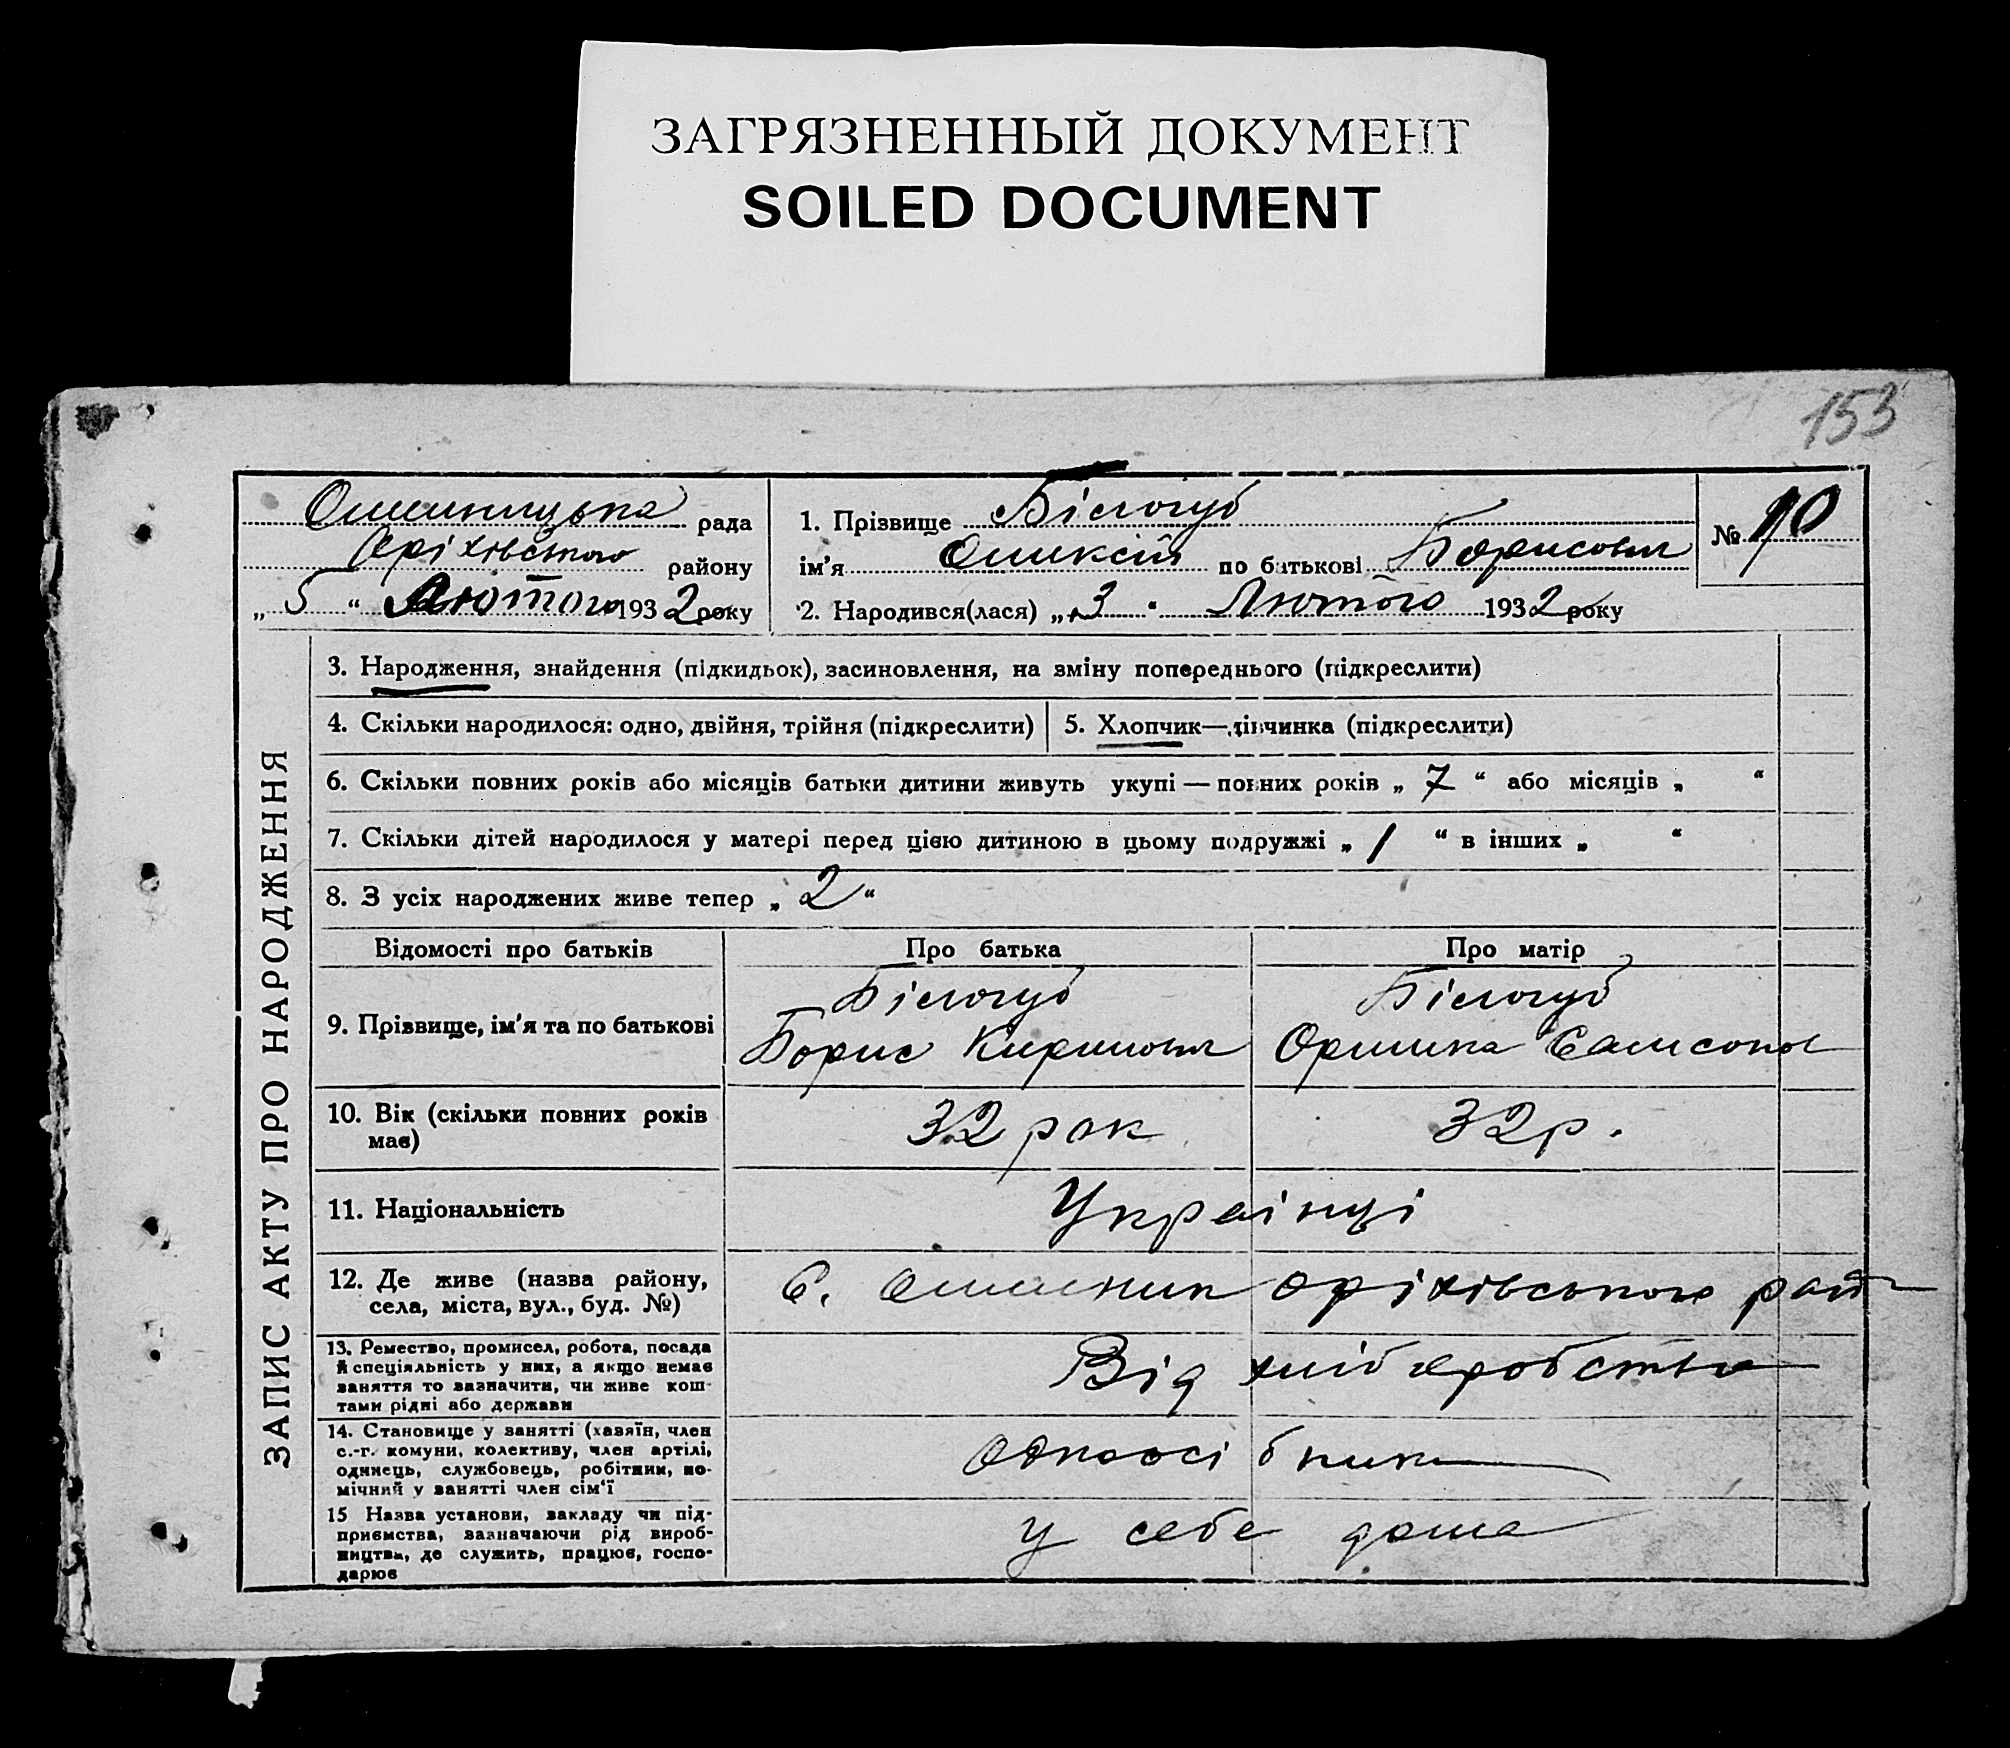 ЗАГРЯЗНЕННЫЙ ДОКУМЕНТ
SOILED DOCUMENT
153
рада
Оріхівського району
„ 5 “ Лютого 1932 року
1. Прізвище Білогуб
ім'я Олексій по батькові Борисович
2. Народився(лася) „ 3 “ Лютого 1932 року
№ 10
ЗАПИС АКТУ ПРО НАРОДЖЕННЯ
3. Народження, знайдення (підкидьок), засиновлення, на зміну попереднього (підкреслити)
4. Скільки народилося: одно, двійня, трійня (підкреслити)
5. Хлопчик—дівчинка (підкреслити)
6. Скільки повних років або місяців батьки дитини живуть укупі — повних років „ 7 “ або місяців „ “
7. Скільки дітей народилося у матері перед цією дитиною в цьому подружжі „ 1 “ в інших „ “
8. З усіх народжених живе тепер „ 2 “
Відомості про батьків
Про батька
Про матір
9. Прізвище, ім'я та по батькові
Білогуб
Борис Кирилович
Білогуб
Орина Самсонов
10. Вік (скільки повних років
має)
32 рок
32 р.
11. Національність
Українці
12. Де живе (назва району,
села, міста, вул., буд. №)
с. Омельник Оріхівського рай
13. Ремество, промисел, робота, посада
й спеціяльність у них, а якщо немає
заняття то зазначити, чи живе кош-
тами рідні або держави
Від хліборобства
14. Становище у занятті (хазяїн, член
с.-г. комуни, колективу, член артілі,
одинець, службовець, робітник, по-
мічний у занятті член сім'ї
Одноосібник
15 Назва установи, закладу чи під-
приємства, зазначаючи рід вироб-
ництва, де служить, працює, госпо-
дарює
у себе дома